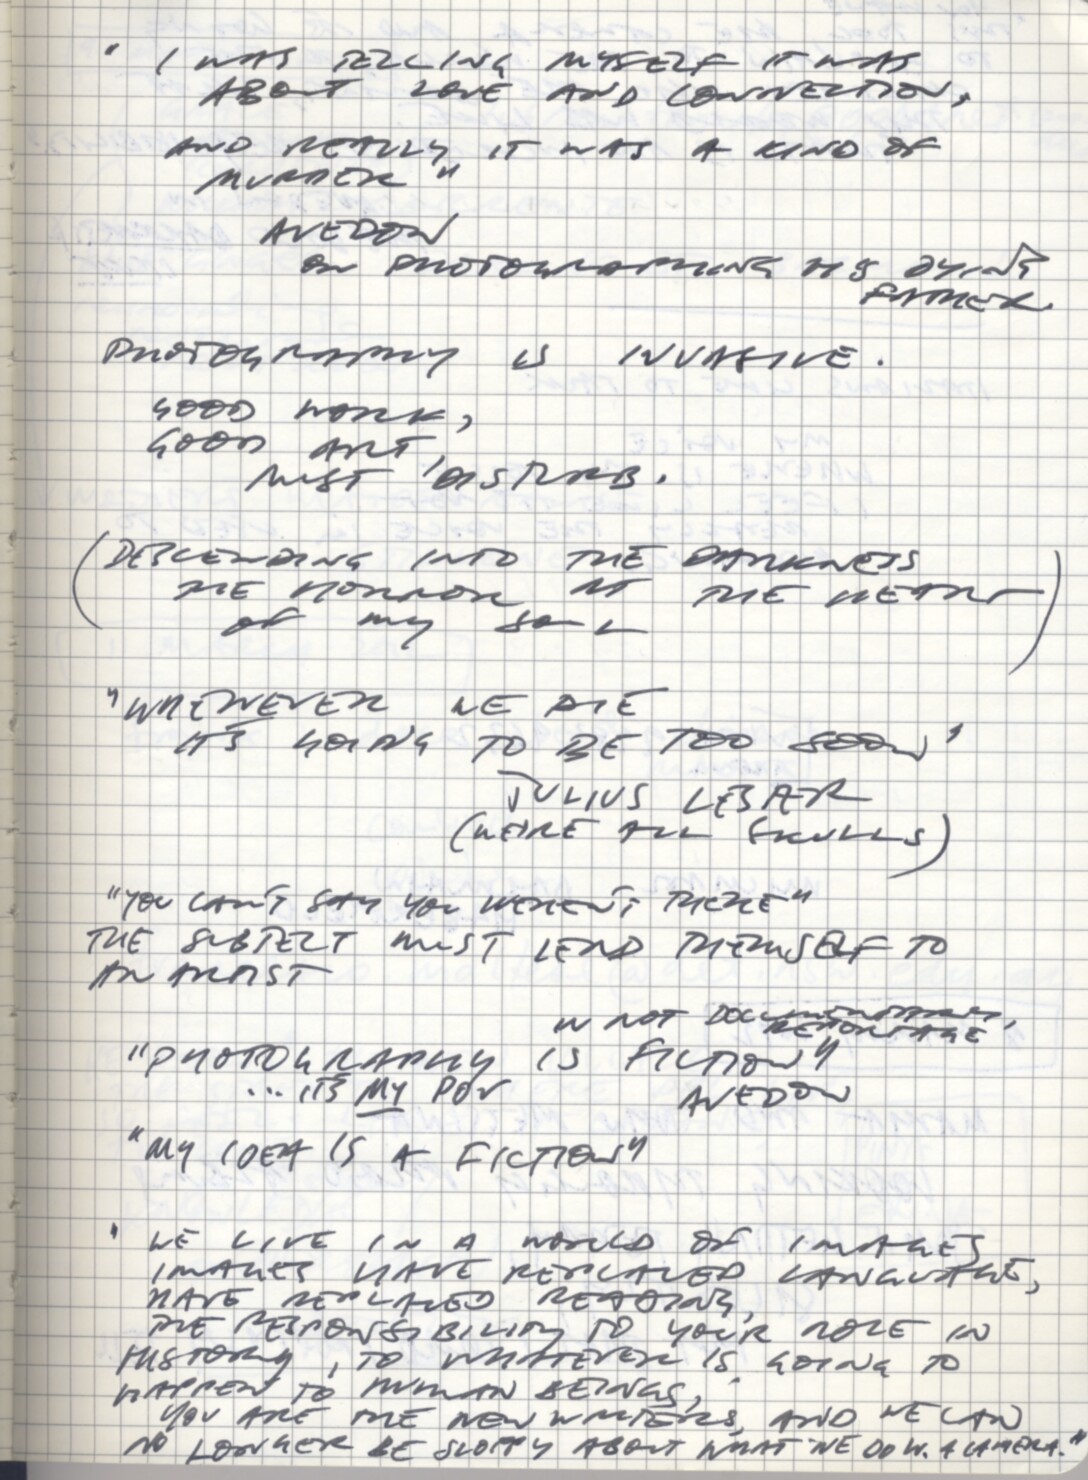 " I WAS TELLING MYSELF IT WAS
ABOUT LOVE AND CONNECTION,
AND REALLY IT WAS A KIND OF
MURDER "
AVEDON
ON PHOTOGRAPHING HIS DYING
FATHER.
PHOTOGRAPHY IS INVASIVE.
GOOD WORK,
GOOD ART,
MUST DISTURB.
(DESCENDING INTO THE DARKNESS
THE HORROR AT THE HEART
OF MY SOUL)
"WHENEVER WE DIE
IT'S GOING TO BE TOO SOON"
JULIUS LESTER
(WE'RE ALL SKULLS)
"YOU CAN'T SAY YOU WEREN'T THERE"
THE SUBJECT MUST LEND THEMSELF TO
AN ARTIST
NOT DOCUMENTARY,
REPORTAGE
"PHOTOGRAPHY IS FICTION"
... IT'S MY POV
AVEDON
"MY IDEA IS A FICTION"
" WE LIVE IN A WORLD OF IMAGES
IMAGES HAVE REPLACED LANGUAGE,
HAVE REPLACED READING,
THE RESPONSIBILITY TO YOUR ROLE IN
HISTORY, TO WHATEVER IS GOING TO
HAPPEN TO HUMAN BEINGS,
YOU ARE THE NEW WRITERS, AND WE CAN
NO LONGER BE SLOPPY ABOUT WHAT WE DO W. A CAMERA."